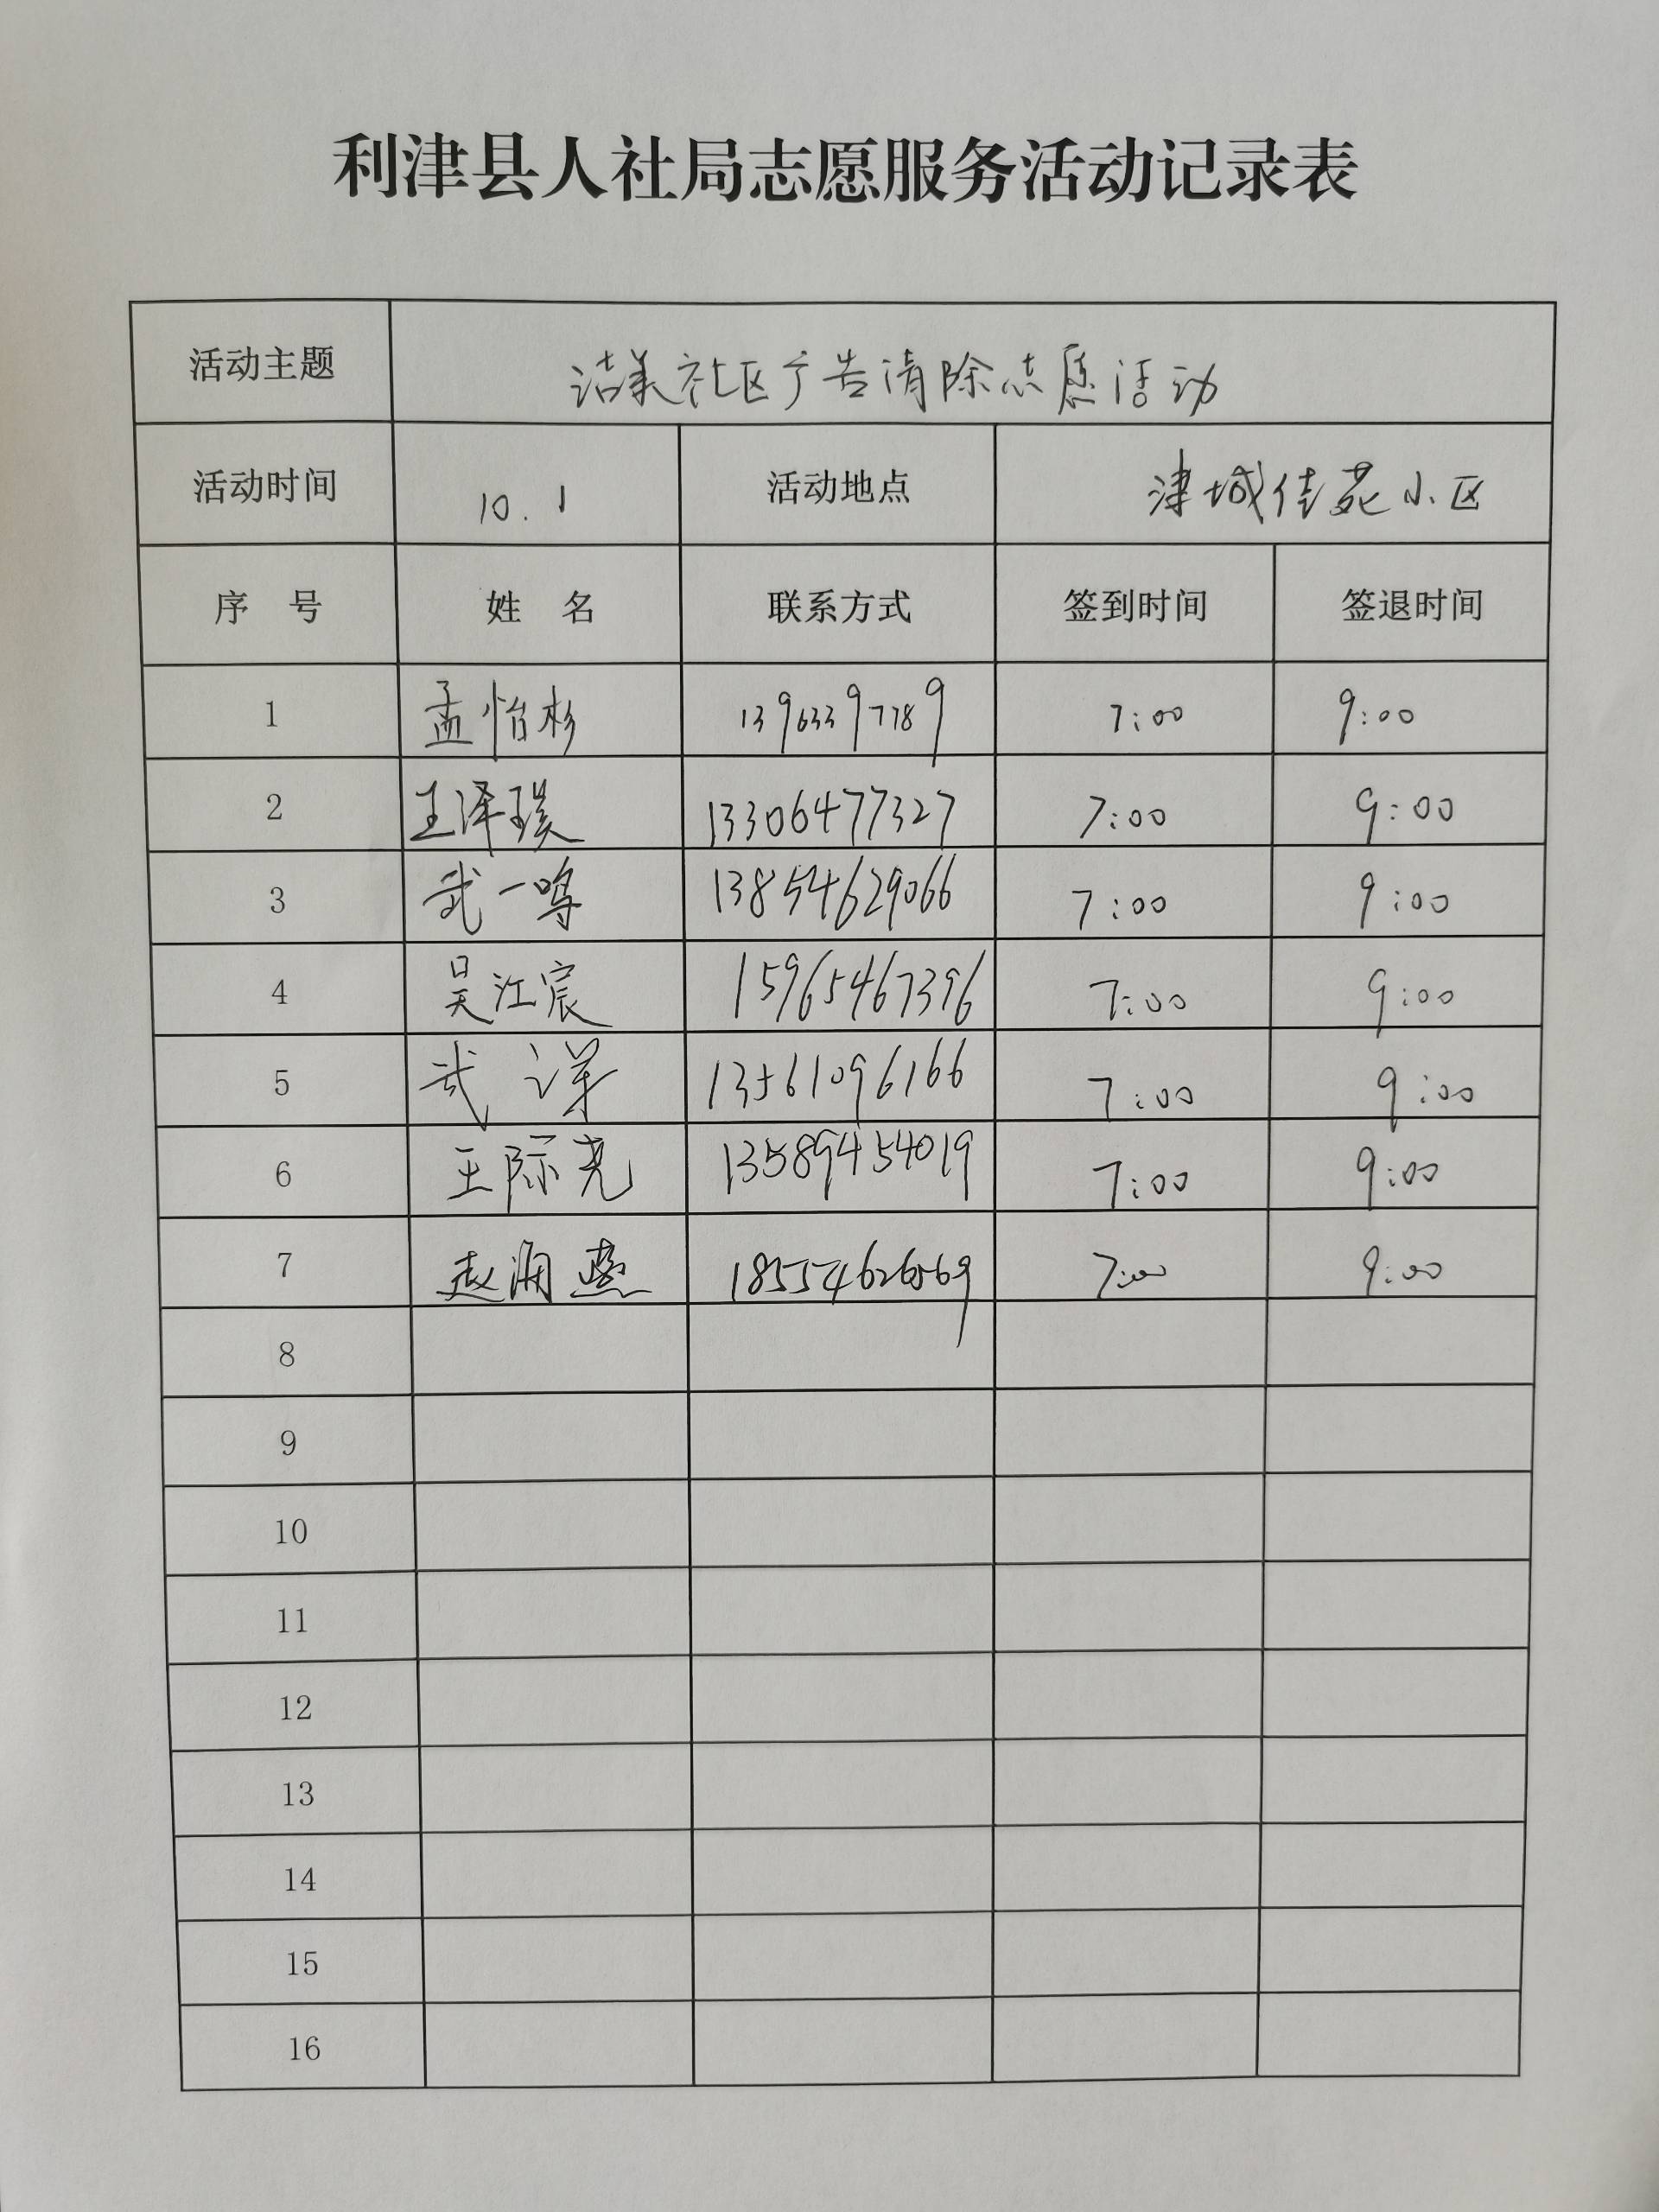 利津县人社局志愿服务活动记录表
活动主题 洁美社区广告清除志愿活动
活动时间 10.1 活动地点 津城佳苑小区
序 号 姓 名 联系方式 签到时间 签退时间
1 孟怡杉 13963397789 7:00 9:00
2 王泽璞 13306477327 7:00 9:00
3 武一鸣 13854629066 7:00 9:00
4 吴江宸 15965467396 7:00 9:00
5 武 洋 13561096166 7:00 9:00
6 王际尧 13589454019 7:00 9:00
7 赵 燕 7:00 9:00
8
9
10
11
12
13
14
15
16